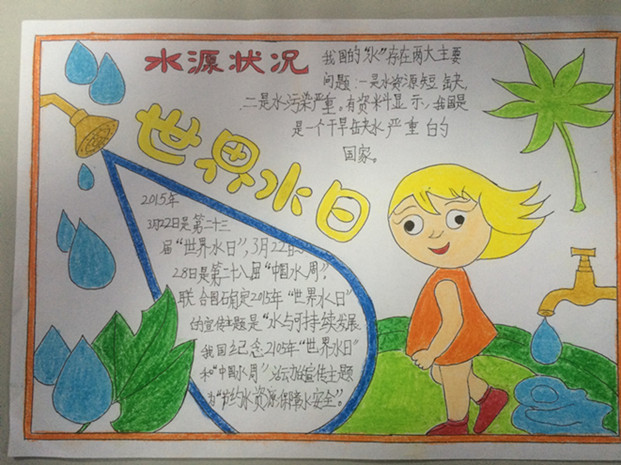 水源状况
我国的"水"存在两大主要
问题:一是水资源短缺,
二是水污染严重。有资料显示,我国是
是一个干旱缺水严重的
国家。
世界水日
2015年
3月22日是第二十三
届"世界水日",3月22日-
28日是第二十八届"中国水周"。
联合国确定2015年"世界水日"
的宣传主题是"水与可持续发展
我国纪念2105年"世界水日"
和"中国水周"活动的宣传主题
为"节约水资源,保障水安全"。